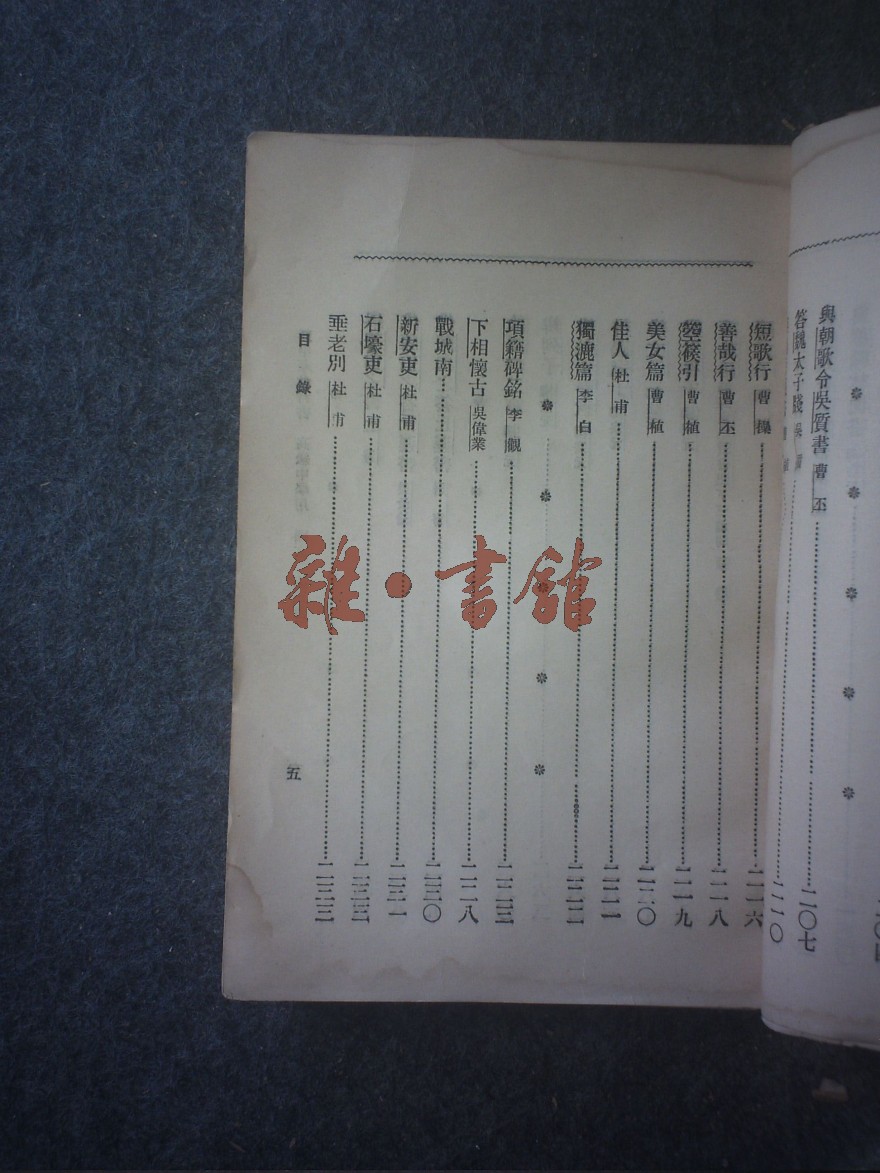 與朝歌令吳質書 曹丕……二〇七
答魏太子牋 吳質……二一〇
短歌行 曹操……二一六
善哉行 曹丕……二一八
箜篌引 曹植……二一九
美女篇 曹植……二二〇
佳人 杜甫……二二一
獨漉篇 李白……二二二
項籍碑銘 李觀……二二三
下相懷古 吳偉業……二二八
戰城南……二三〇
新安吏 杜甫……二三一
石壕吏 杜甫……二三二
垂老別 杜甫……二三三
目錄
五
雜·書館